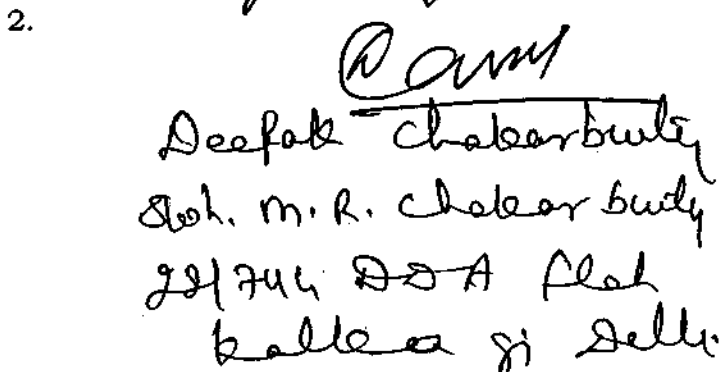 2.
Deepak Chakarburty
S/oh. M. R. Chakarburty
29/744 DDA Flat
Kalka Ji Delhi